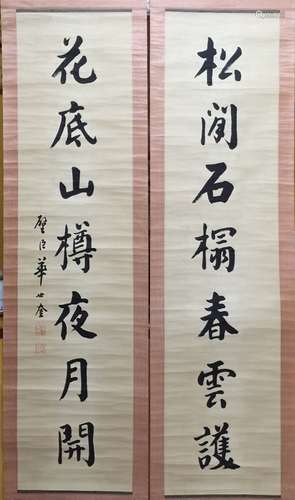 松間石榻春雲護
花底山樽夜月開
璧臣華世奎